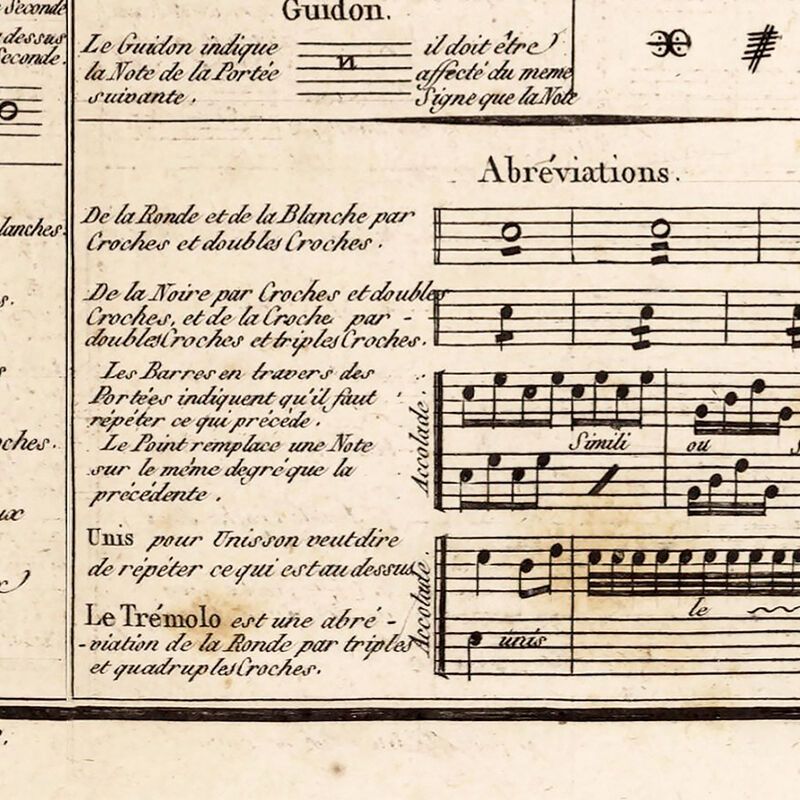 Seconde
dessus
Seconde.
lanches.
oches.
Guidon.
Le Guidon indique
la Note de la Portée
suivante.
il doit être
affecté du meme
Signe que la Note
Abréviations.
De la Ronde et de la Blanche par
Croches et doubles Croches.
De la Noire par Croches et doubles
Croches, et de la Croche par -
doubles Croches et triples Croches.
Les Barres en travers des
Portées indiquent qu'il faut
répéter ce qui précède.
Le Point remplace une Note
sur le méme degré que la
précédente.
Accolade.
Simili
ou
Unis pour Unisson veut dire
de répéter ce qui est au dessus
Le Trémolo est une abré -
- viation de la Ronde par triples
et quadruples Croches.
Accolade.
le
unis